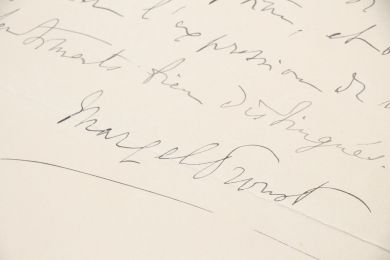 l'expression de
sentiments bien distingués.
Marcel Proust